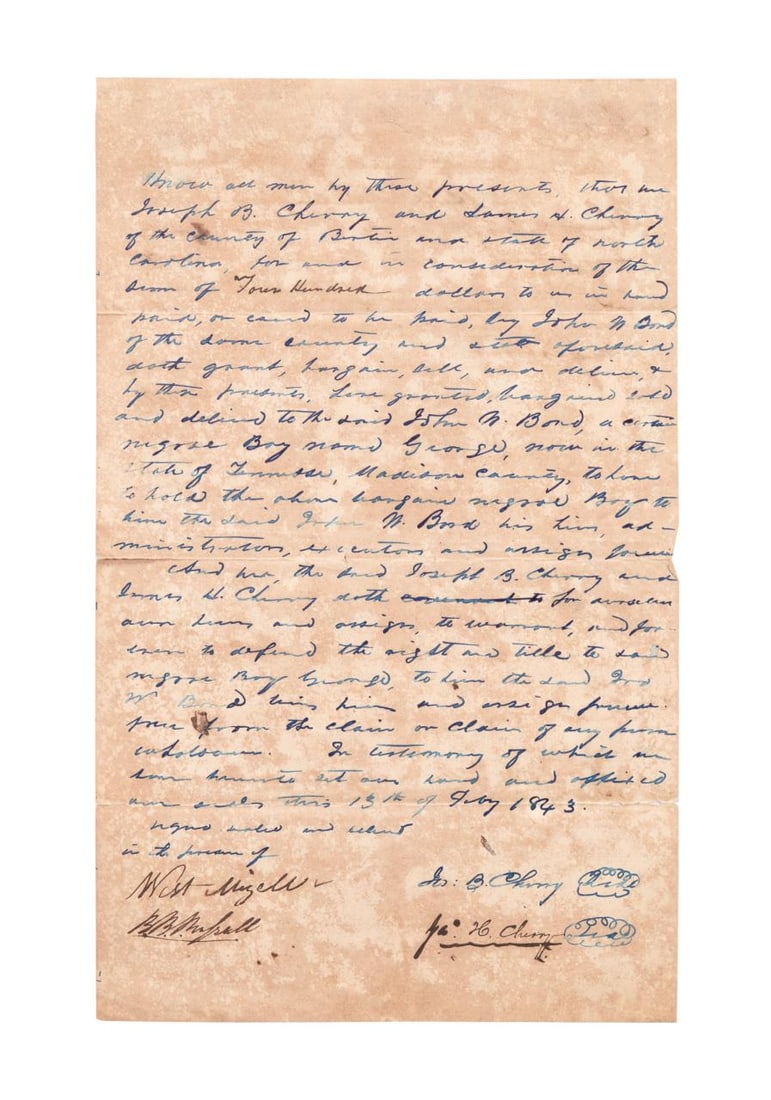 Know all men by these presents, that we
Joseph B. Cherry and James H. Cherry
of the county of Bertie and state of north
Carolina, for and in consideration of the
sum of Four Hundred dollars to us in hand
paid, or caused to be paid, by John W Bond
of the same county and state aforesaid,
doth grant, bargain, sell, and deliver, &
by these presents, have granted, bargained sold
and delivered to the said John W. Bond, a certain
negroe Boy named George, now in the
State of Tennessee, Madison county, to have
to hold the above bargain negroe Boy to
him the said John W. Bond his heirs, ad-
ministrators, executors and assigns forever
And we, the said Joseph B. Cherry and
James H. Cherry doth covenant to for ourselves
our heirs and assigns, to warrant, and for-
ever to defend the right and title to said
negroe Boy George, to him the said Jno
W Bond his heirs and assigns forever
free from the claim or claims of any person
whatsoever. In testimony of which we
have hereunto set our hand and affixed
our seals this 13th of Feby 1843.
signed sealed and delivered
in the presence of
West Mizell
Jos: B. Cherry Seal
Jas H. Cherry Seal